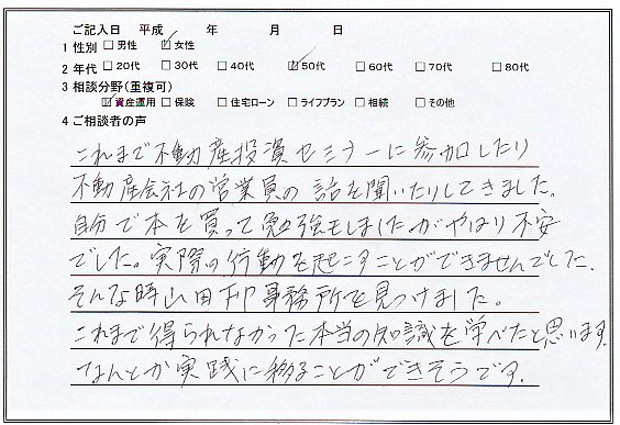 ご記入日 平成 年 月 日
1 性別 □男性 ☑女性
2 年代 □20代 □30代 □40代 ☑50代 □60代 □70代 □80代
3 相談分野(重複可)
☑資産運用 □保険 □住宅ローン □ライフプラン □相続 □その他
4 ご相談者の声
これまで不動産投資セミナーに参加したり
不動産会社の営業員の話を聞いたりしてきました。
自分で本を買って勉強もしましたがやはり不安
でした。実際の行動を起こすことができませんでした、
そんな時山田FP事務所を見つけました。
これまで得られなかった本当の知識を学べたと思います。
なんとか実践に移ることができそうです。